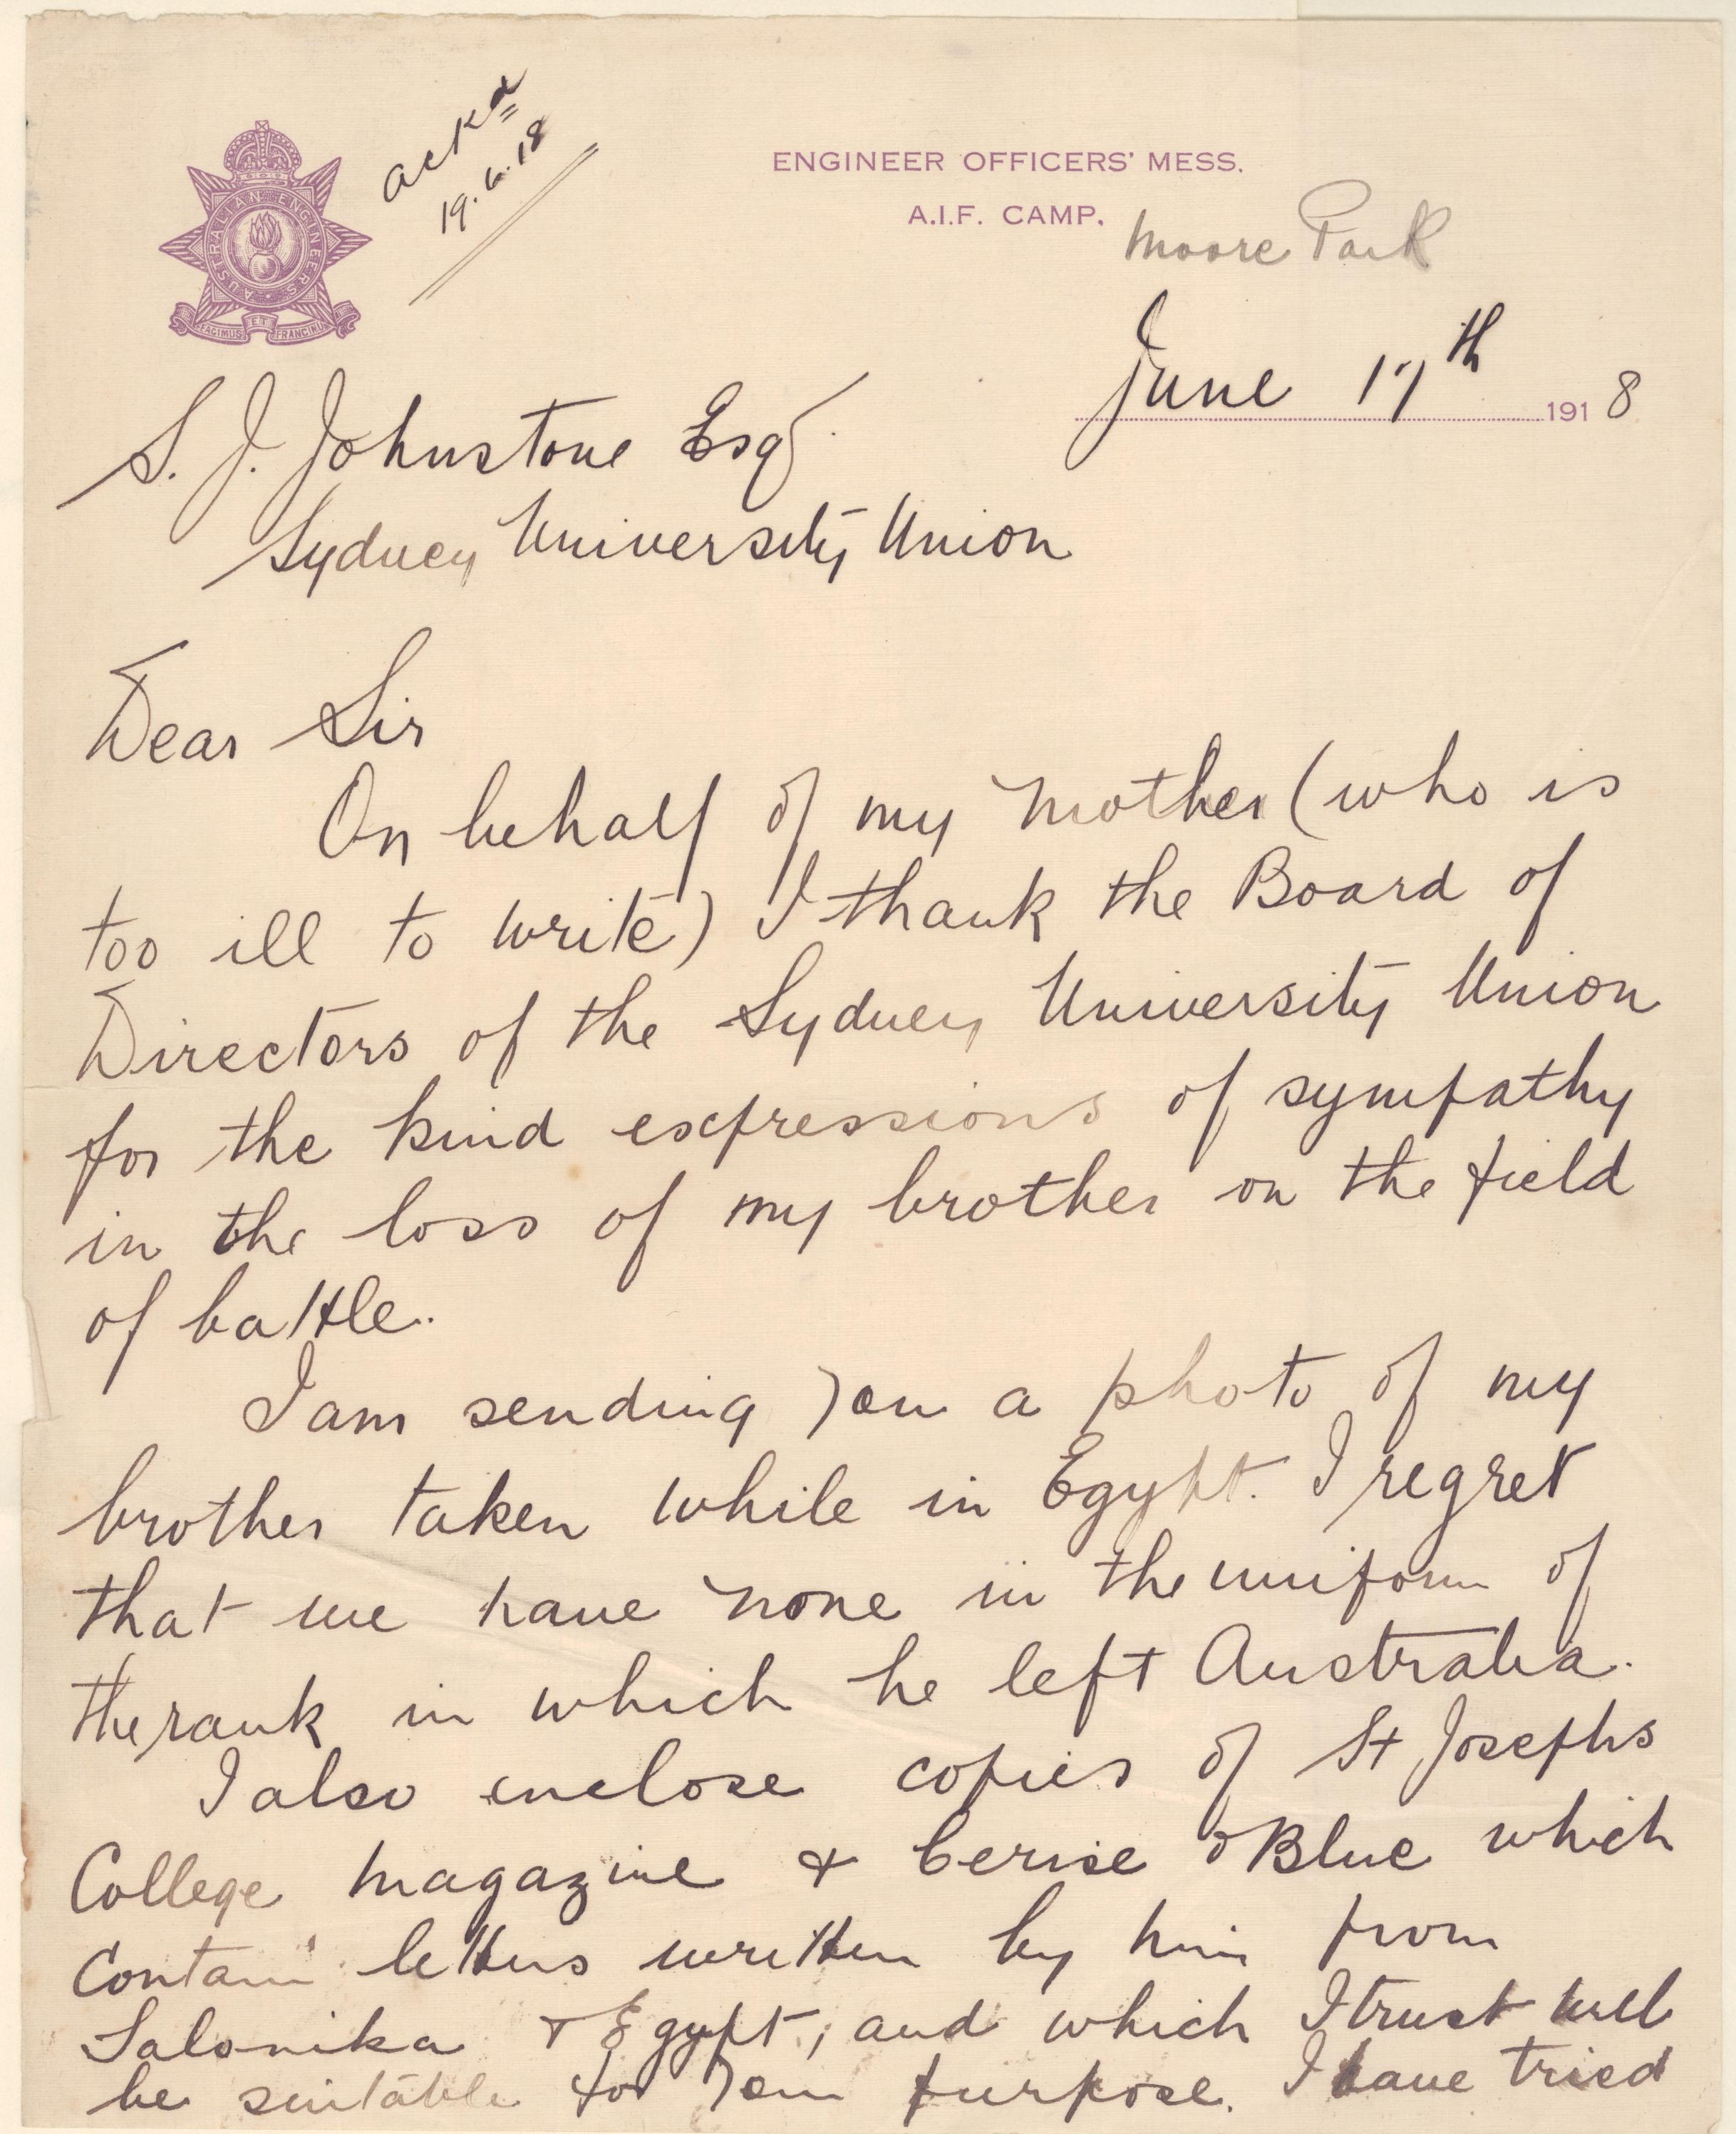 ackd
19.6.18
ENGINEER OFFICERS' MESS.
A.I.F. CAMP.
Moore Park
AUSTRALIAN ENGINEERS
FACIMUS ET FRANGIMUS
June 17th 1918
S. J. Johnstone Esq
Sydney University Union
Dear Sir
On behalf of my mother (who is
too ill to write) I thank the Board of
Directors of the Sydney University Union
for the kind expressions of sympathy
in the loss of my brother on the field
of battle.
I am sending you a photo of my
brother taken while in Egypt. I regret
that we have none in the uniform of
the rank in which he left Australia.
I also enclose copies of St Josephs
College magazine & Cerise & Blue which
contain letters written by him from
Salonika & Egypt, and which I trust will
be suitable for your purpose. I have tried